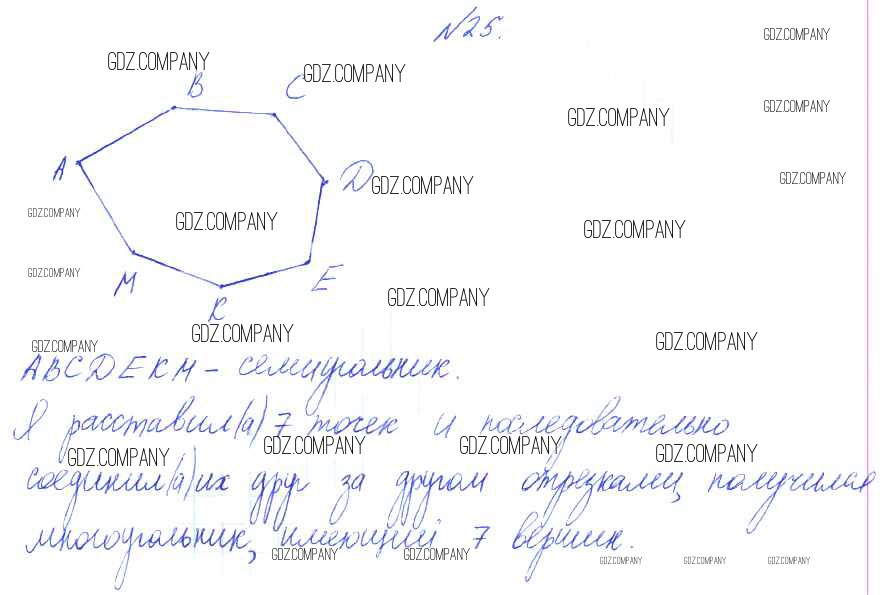 №25.
GDZ.COMPANY
GDZ.COMPANY
GDZ.COMPANY
B
C
GDZ.COMPANY
GDZ.COMPANY
A
D
GDZ.COMPANY
GDZ.COMPANY
GDZ.COMPANY
GDZ.COMPANY
GDZ.COMPANY
GDZ.COMPANY
M
E
K
GDZ.COMPANY
GDZ.COMPANY
GDZ.COMPANY
GDZ.COMPANY
ABCDEKM – семиугольник.
Я расставил(а) 7 точек и последовательно
GDZ.COMPANY
GDZ.COMPANY
GDZ.COMPANY
GDZ.COMPANY
соединил(а) их друг за другом отрезками, получился
многоугольник, имеющий 7 вершин.
GDZ.COMPANY
GDZ.COMPANY
GDZ.COMPANY
GDZ.COMPANY
GDZ.COMPANY